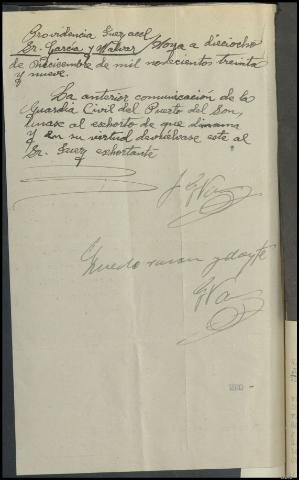 Providencia Juez accl
Sr. García y Malvar / Noya a dieciocho
de Diciembre de mil novecientos treinta
y nueve.
La anterior comunicación de la
Guardia Civil del Puerto del Son,
unase al exhorto de que dimana
y en su virtud devuélvase este al
Sr. Juez exhortante
Quedo